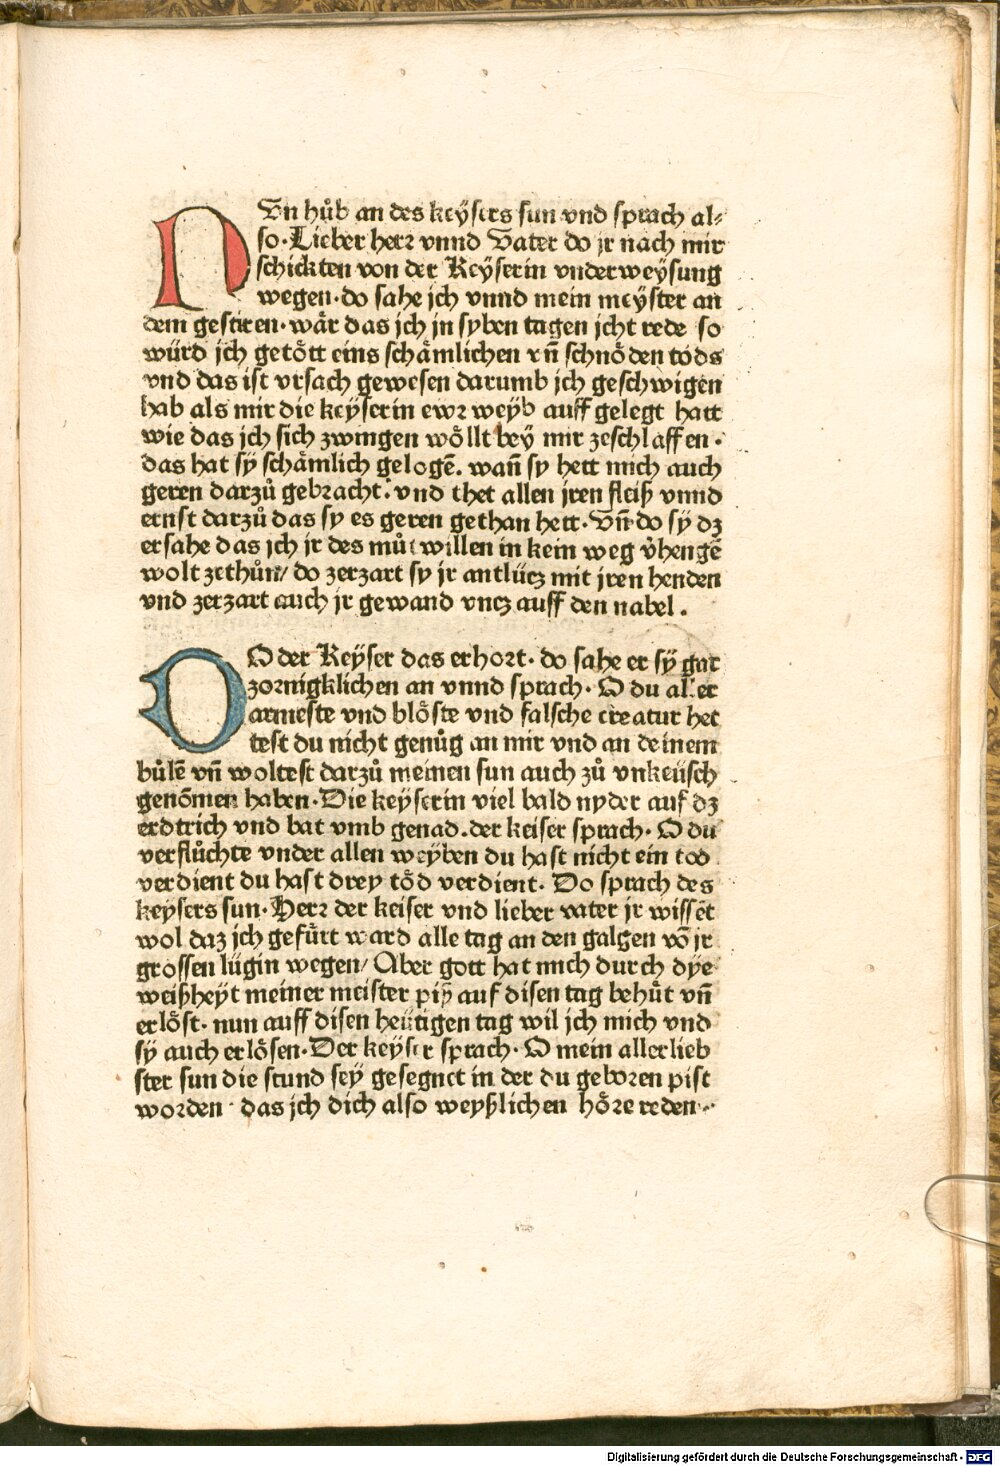 NVn hůb an des keÿsers sun vnd sprach al⸗
so·Lieber herꝛ vnnd Vater do jr nach mir
schickten von der Keÿserin vnderweÿsung
wegen·do sahe jch vnnd mein meÿster an
dem gestiren·wår das jch jn syben tagen jcht rede so
wúrd jch getött eins schåmlichen vñ schnöden tods
vnd das ist vrsach gewesen darumb jch geschwigen
hab als mir die keÿserin ewꝛ weÿb auff gelegt hatt
wie das jch sich zwingen wöllt beÿ mir zeschlaffen·
das hat sÿ schåmlich gelogẽ. wañ sy hett mich auch
geren darzů gebꝛacht·vnd thet allen jren fleiß vnnd
ernst darzů das sy es geren gethan hett·Vñ do sÿ dz
ersahe das jch jr des můtwillen in kein weg v̉hengẽ
wolt zethůn/ do zerzart sy jr antlücz mit jren henden
vnd zerzart auch jr gewand vncz auff den nabel.
DO der Keÿser das erhoꝛt·do sahe er sÿ gar
zoꝛnigklichen an vnnd sprach·O du aller
armeste vnd blöste vnd falsche creatur het
test du nicht genůg an mir vnd an deinem
bůlẽ vñ woltest darzů meinen sun auch zů vnkeüsch
genõmen haben·Die keÿserin viel bald nyder auf dz
erdtrich vnd bat vmb genad.der keiser sprach·O du
verflůchte vnder allen weÿben du hast nicht ein tod
verdient du hast drey töd verdient·Do sprach des
keysers sun·Herꝛ der keiser vnd lieber vater jr wissẽt
wol daz jch gefürt ward alle tag an den galgen võ jr
grossen lügin wegen/ Aber gott hat mich durch dÿe
weißheÿt meiner meister piß auf disen tag behůt vñ
erlöst·nun auff disen heütigen tag wil jch mich vnd
sÿ auch erlösen·Der keÿser sprach·O mein allerlieb
ster sun die stund seÿ gesegnet in der du geboꝛen pist
woꝛden· das jch dich also weyßlichen höꝛe reden·
Digitalisierung gefördert durch die Deutsche Forschungsgemeinschaft · DFG